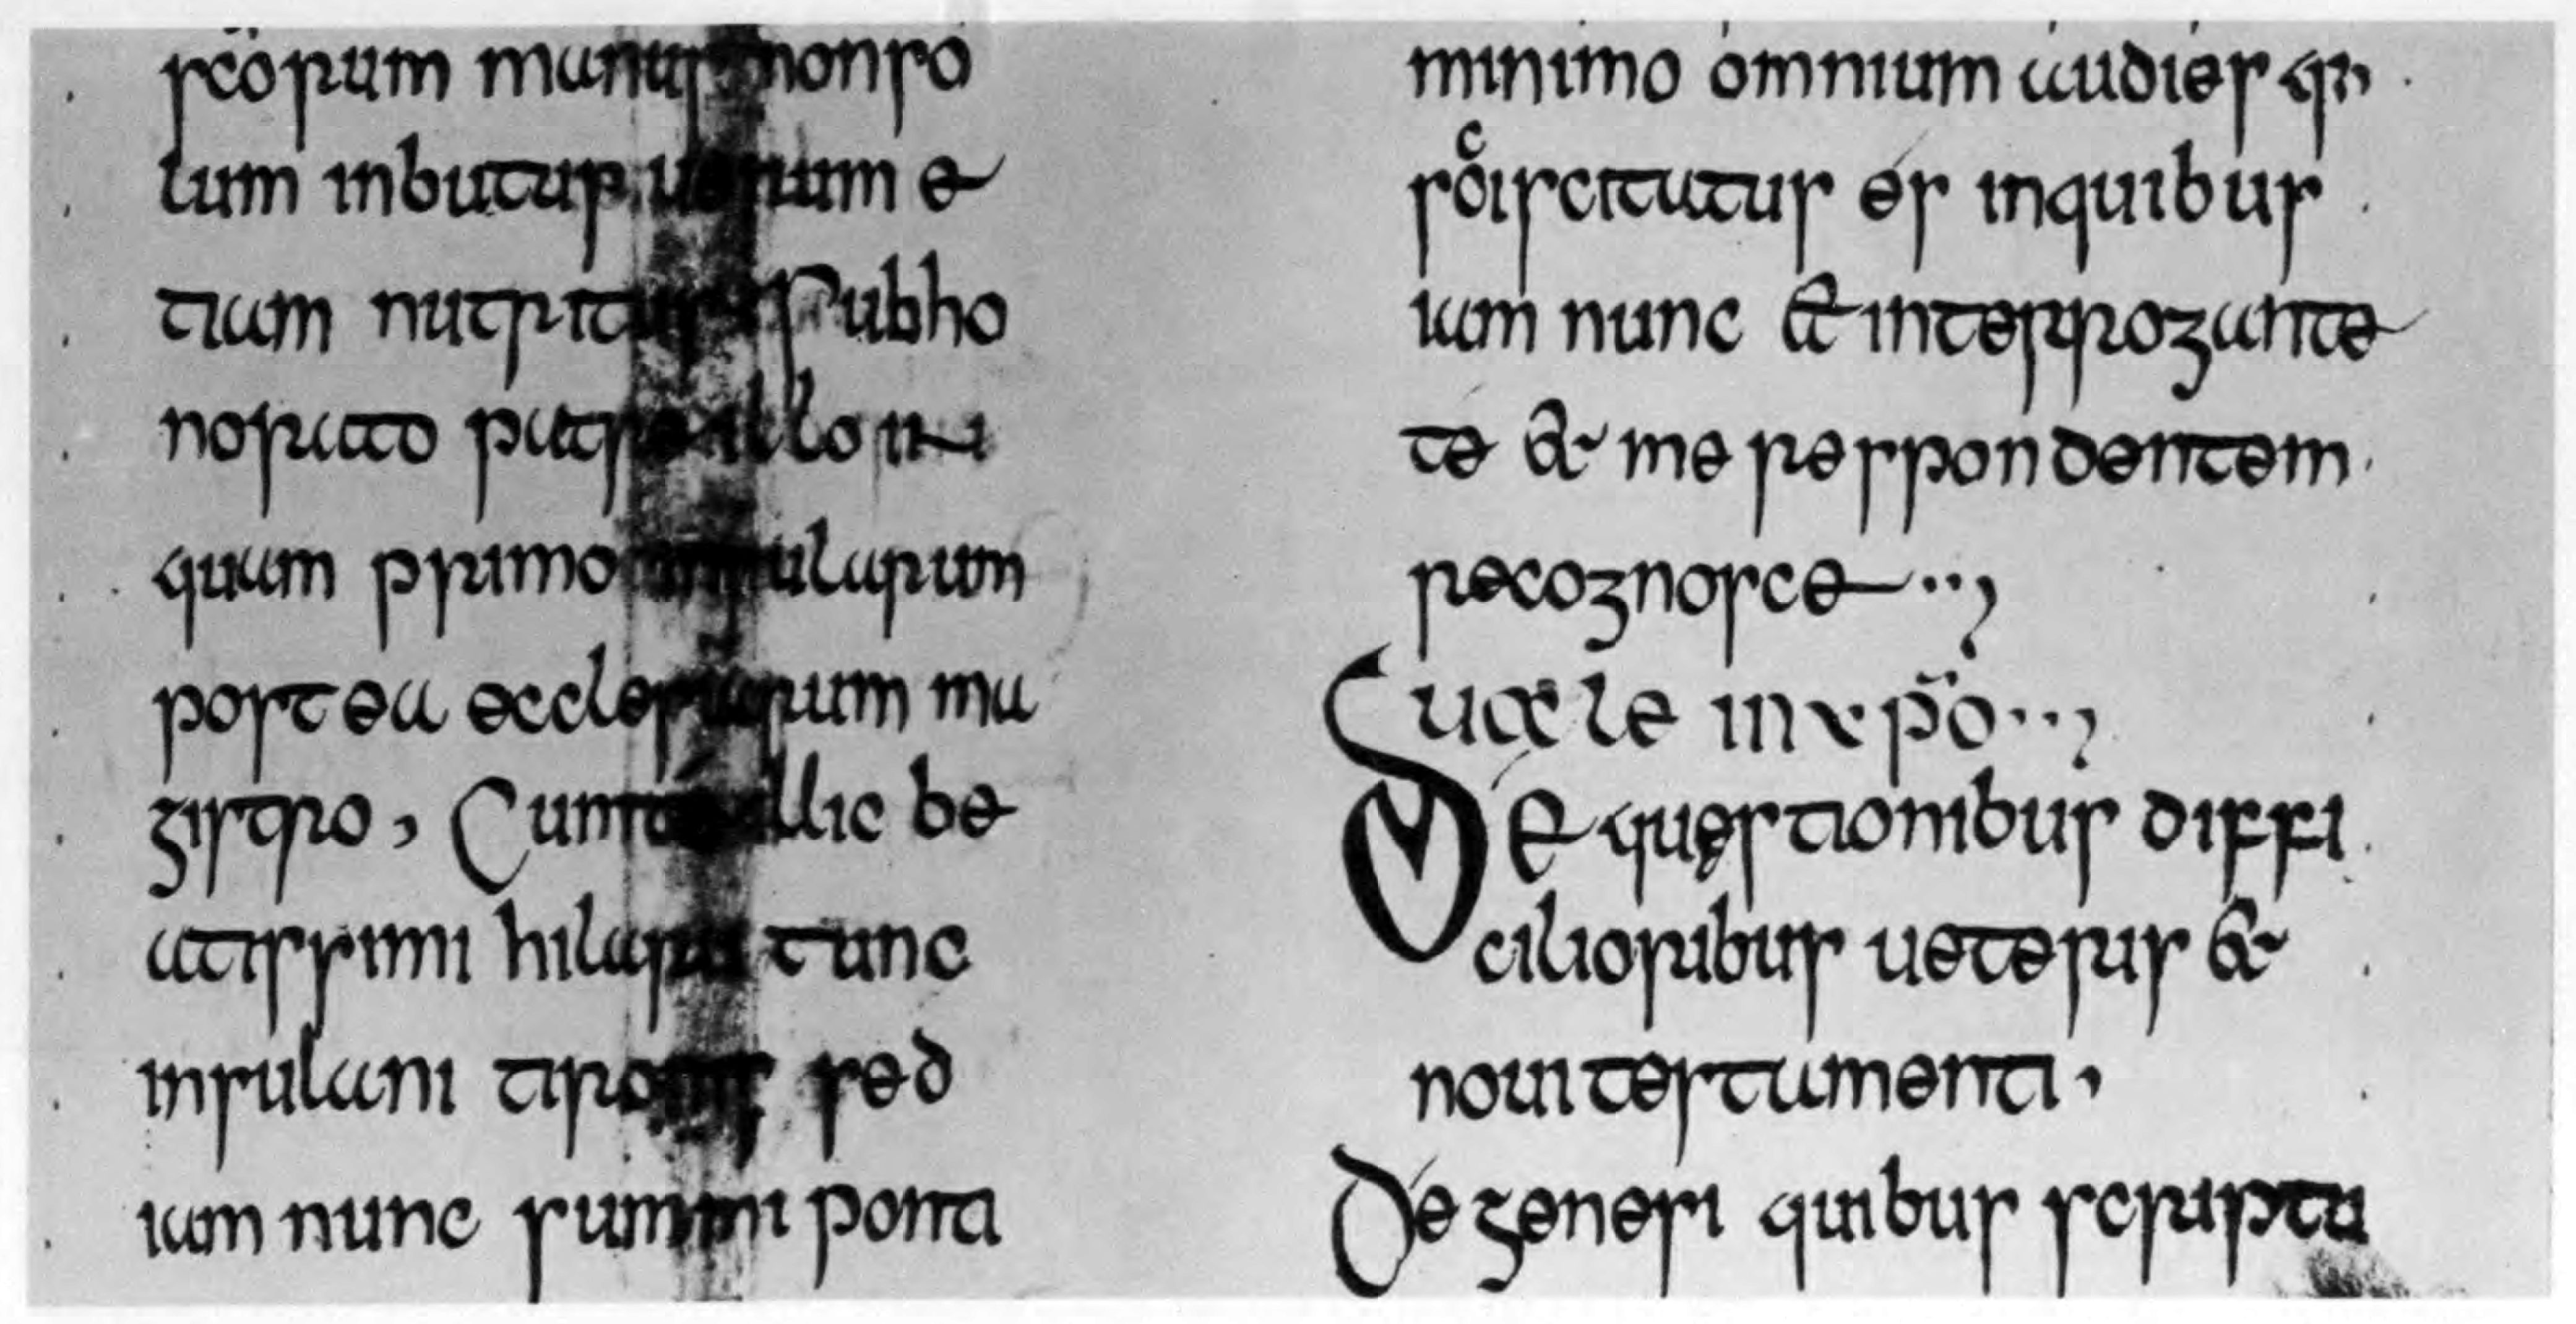 scõrum manus non so
lum inbutus uerum e
tiam nutritus Sub ho
norato patre illo in
quam primo insularum
postea ecclesiarum ma
gistro, Cum te illic be
atissimi hilarii tunc
insulani tironis sed
iam nunc summi ponti
minimo omnium audies qu
sciscitatus es in quibus
iam nunc et interrogante
te et me respondentem
recognosce ..,
Uale in xp̃o ..,
De questionibus diffi
cilioribus ueteris et
noui testamenti,
De genesi quibus scriptu